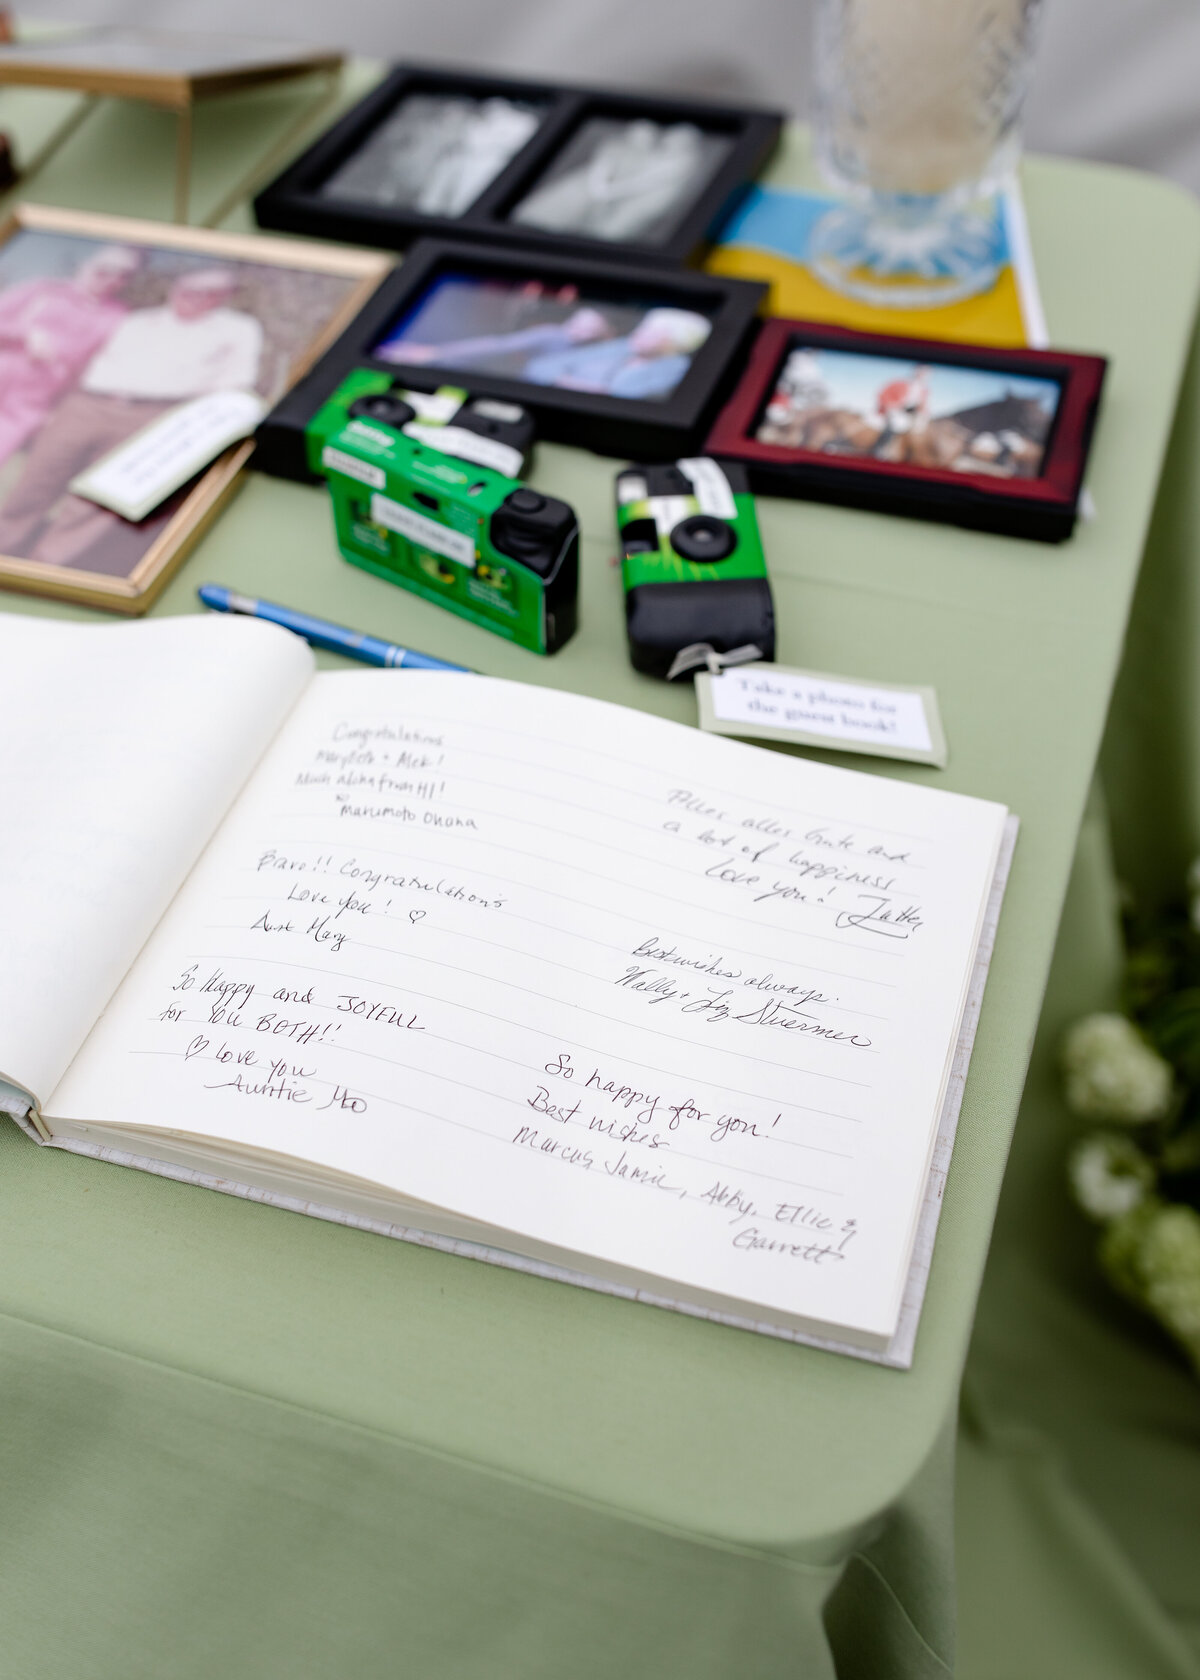 Take a photo for
the guest book!
Congratulations
Marybeth + Alek!
Much aloha from HI!
Marumoto Ohana
Bravo!! Congratulations
Love you! ♡
Aunt Mary
So Happy and JOYFUL
for YOU BOTH!!
♡ Love you
Auntie Mo
Alles alles Gute and
a lot of happiness
Love you!
Best wishes always.
Wally + Liz Stuermer
So happy for you!
Best wishes
Marcus, Jamie, Abby, Ellie &
Garrett